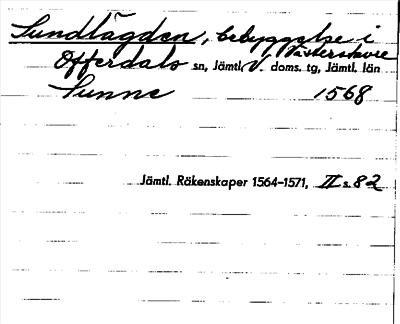 Sundlägden, bebyggelse i
Västerskure
Offerdals sn, Jämtl. V. doms. tg, Jämtl. län
Sunne 1568
Jämtl. Räkenskaper 1564–1571, II s. 82